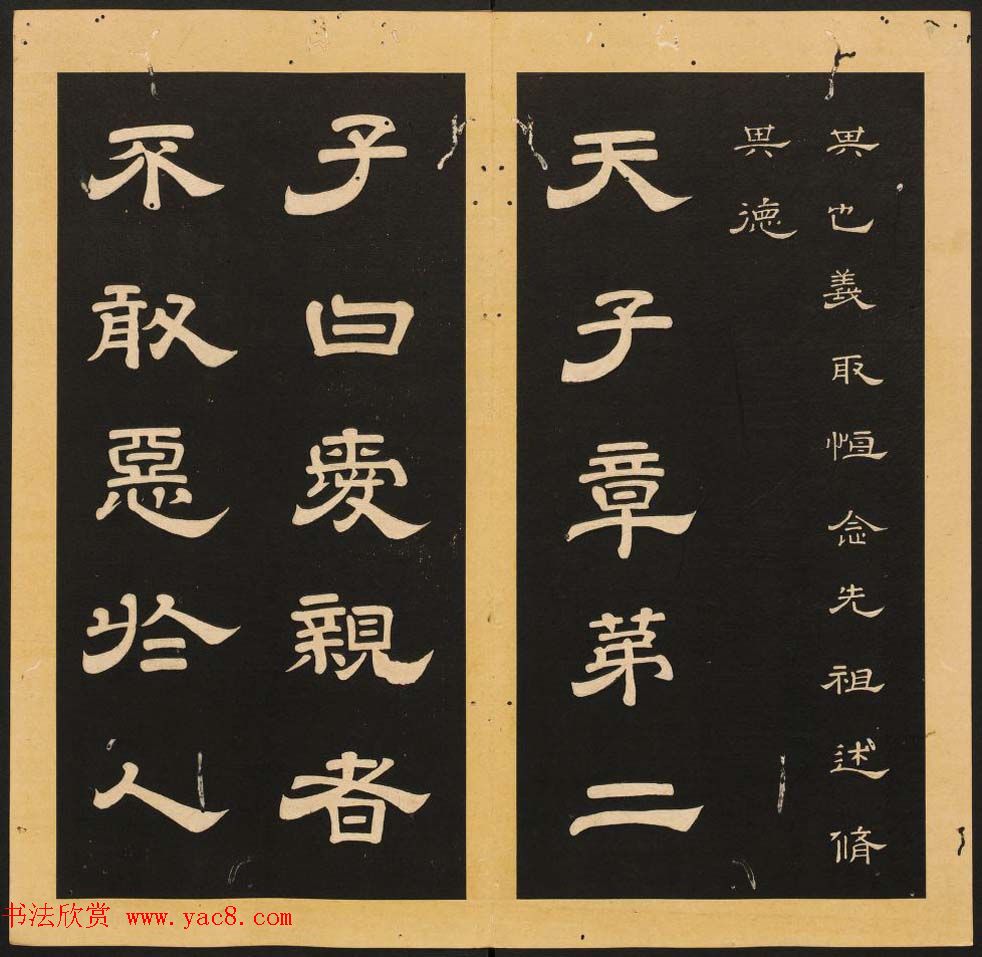 其也義取恒念先祖述脩
其德
天子章第二
子曰愛親者
不敢惡於人
书法欣赏 www.yac8.com